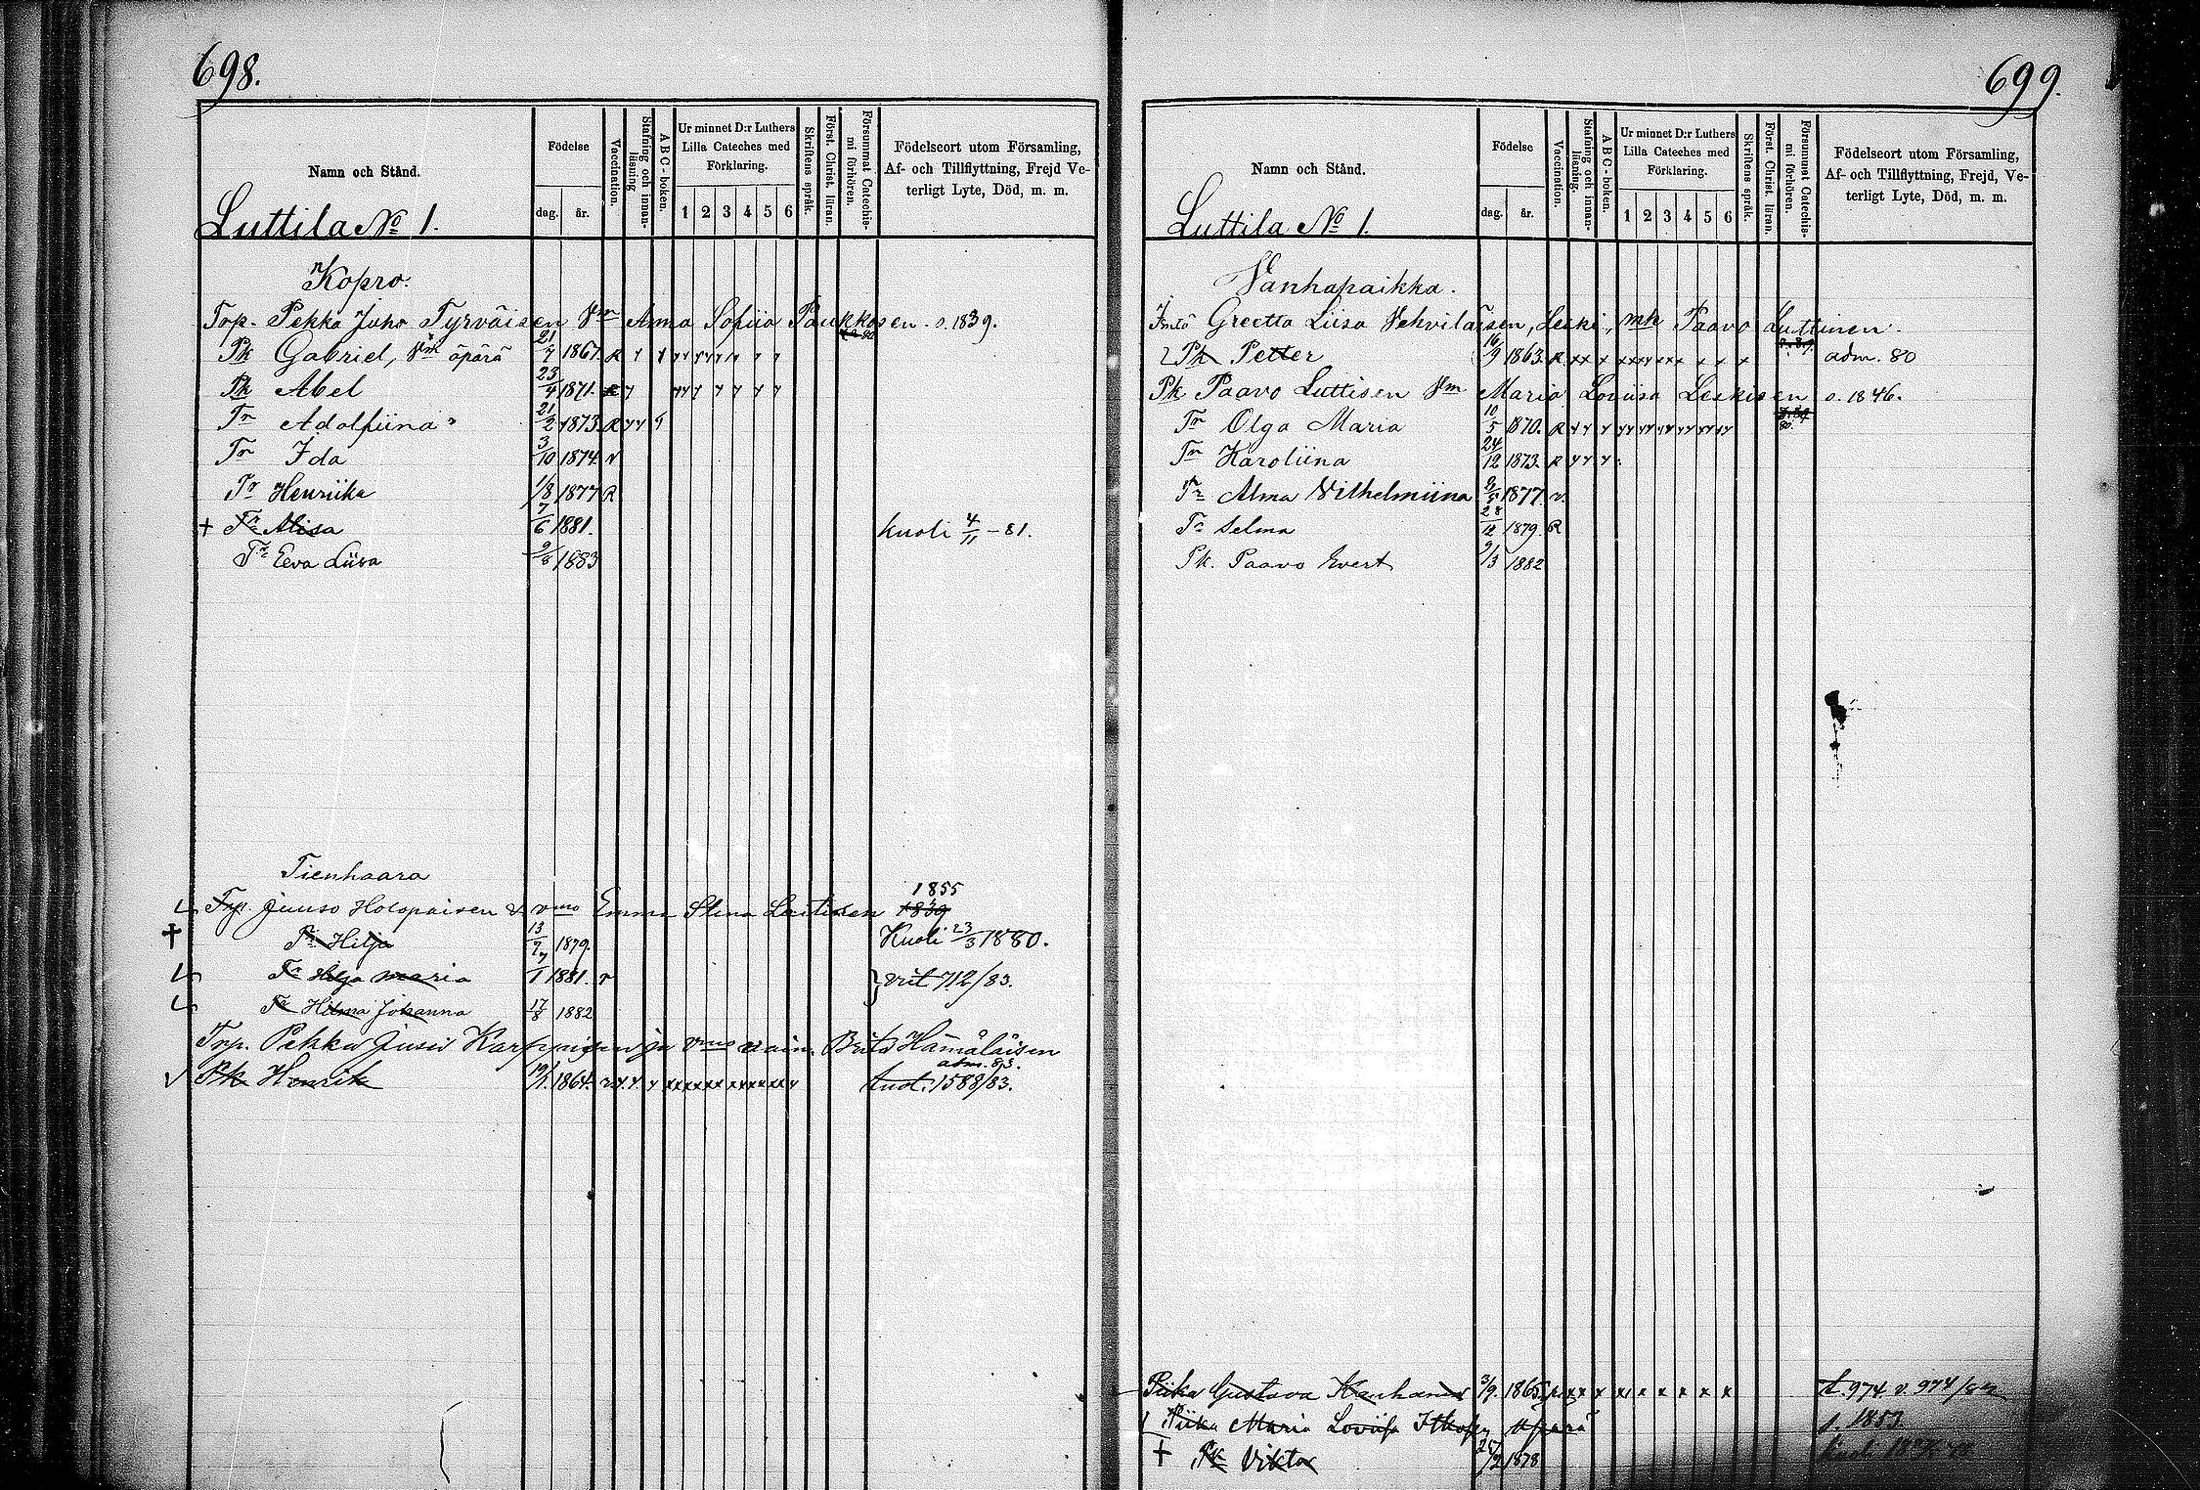 698.
Namn och Stånd.
Födelse
dag.
år.
Vaccination.
Stafning och innanläsning
ABC-boken.
Ur minnet D:r Luthers Lilla Cateches med Förklaring.
1 2 3 4 5 6
Skriftens språk.
Först. Christ. läran.
Försummat Catechismi förhören.
Födelseort utom Församling, Af- och Tillflyttning, Frejd Veterligt Lyte, Död, m. m.
Luttila No 1.
Kopro.
Trp. Pekka Juho Tyrväisen Vm Anna Sofiia Paukkosen o. 1839.
Pk Gabriel, Vm äpärä 21/7 1867. R
Pk Abel 23/4 1871.
Tr Adolfiina 21/2 1873. R
Tr Ida 3/10 1874
Tr Henriika 1/8 1877 R
+ Tr Alisa 7/6 1881. kuoli 4/11 - 81.
Tr Eeva Liisa 1883
Tienhaara
Trp. Juuso Holopaisen vmo Emma Stina 1855 1839
Tr Hilja 13/7 1879. Kuoli 23/3 1880.
Tr Hilja Maria 1881. r
Tr Hilma Johanna 17/8 1882 } vrit 712/83.
Trp. Pekka Karppasen ja vmo vain. Hämäläisen
Pk Henrik 1864. adm. 83. tuol. 1588/83.
699.
Namn och Stånd.
Födelse
dag.
år.
Vaccination.
Stafning och innanläsning.
ABC-boken.
Ur minnet D:r Luthers Lilla Cateches med Förklaring.
1 2 3 4 5 6
Skriftens språk.
Först. Christ. läran.
Försummat Catechismi förhören.
Födelseort utom Församling, Af- och Tillflyttning, Frejd, Veterligt Lyte, Död, m. m.
Luttila No 1.
Vanhapaikka.
Greetta Liisa Vehviläisen, Leski, mk Paavo Luttinen.
Pk Petter 16/9 1863. R adm. 80
Pk Paavo Luttisen Vm Maria Loviisa Leskisen o. 1846.
Tr Olga Maria 10/5 1870. R
Tr Karoliina 24/12 1873. R
Tr Alma Vilhelmiina 1877.
Tr Selma 28/12 1879. R
Pk. Paavo Evert 9/3 1882
Piika Gustava 3/9 1865 t. 974 v. 974/82
Piika Maria Loviisa äpärä s. 1853
+ Pk Viktor 1878